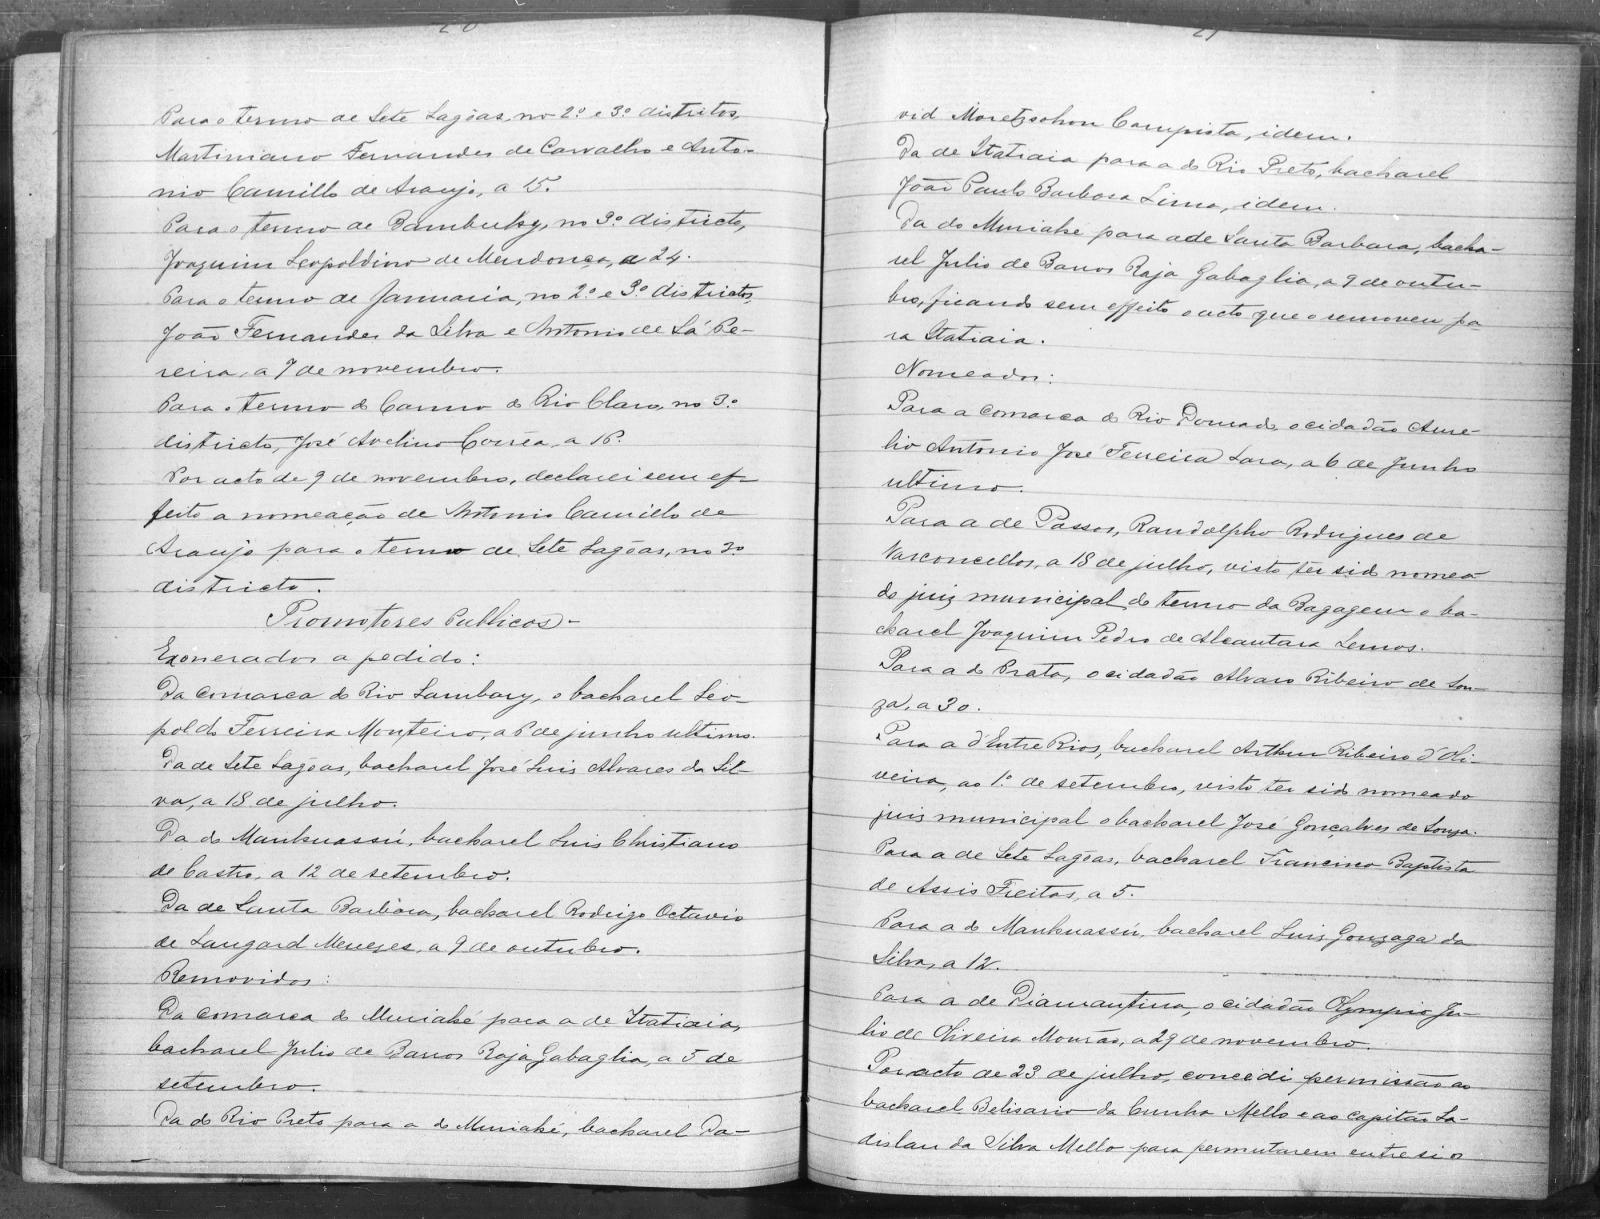 Para o termo de Sete Lagôas, no 2º e 3º districtos,
Martiniano Fernandes de Carvalho e Anto-
nio Camillo de Araujo, a 15.
Para o termo de Bambuhy, no 3º districto,
Joaquim Leopoldino de Mendonça, a 24.
Para o termo de Januaria, no 2º e 3º districtos,
João Fernandes da Silva e Antonio de Sá Pe-
reira, a 7 de novembro.
Para o termo do Carmo do Rio Claro, no 3º
districto, José Avelino Corrêa, a 16.
Por acto de 9 de novembro, declarei sem ef-
feito a nomeação de Antonio Camillo de
Araujo para o termo de Sete Lagôas, no 3º
districto.
Promotores Publicos-
Exonerados a pedido:
Da comarca do Rio Lambary, o bacharel Leo-
poldo Ferreira Monteiro, a 6 de junho ultimo.
Da de Sete Lagôas, bacharel José Luis Alvares da Sil-
va, a 18 de julho.
Da do Manhuassú, bacharel Luis Christiano
de Castro, a 12 de setembro.
Da de Santa Barbara, bacharel Rodrigo Octavio
de Langard Menezes, a 9 de outubro.
Removidos:
Da comarca do Muriahé para a de Itatiaia,
bacharel Julio de Barros Raja Gabaglia, a 5 de
setembro.
Da do Rio Preto para a do Muriahé, bacharel Da-
vid Moretzsohon Campista, idem.
Da de Itatiaia para a do Rio Preto, bacharel
João Paulo Barbosa Lima, idem.
Da do Muriahe para a de Santa Barbara, bacha-
rel Julio de Barros Raja Gabaglia, a 9 de outu-
bro, ficando sem effeito o acto que o removeu pa-
ra Itatiaia.
Nomeados:
Para a comarca do Rio Dourado, o cidadão Aure-
lio Antonio José Ferreira Lara, a 6 de Junho
ultimo.
Para a de Passos, Randolpho Rodrigues de
Vasconcellos, a 18 de julho, visto ter sido nomea-
do juiz municipal do termo da Bagagem o ba-
charel Joaquim Pedro de Alcantara Lemos.
Para a do Prata, o cidadão Alvaro Ribeiro de Sou-
za, a 30.
Para a d'Entre Rios, bacharel Arthur Ribeiro d'Oli-
veira, ao 1º de setembro, visto ter sido nomeado
juiz municipal o bacharel José Gonçalves de Souza.
Para a de Sete Lagôas, bacharel Francisco Baptista
de Assis Freitas, a 5.
Para a do Manhuassú, bacharel Luiz Gonzaga da
Silva, a 12.
Para a de Diamantina, o cidadão Olympio Ju-
lio de Oliveira Mourão, a 29 de novembro.
Por acto de 23 de julho, concedi permissão ao
bacharel Belisario da Cunha Mello e ao capitão La-
dislau da Silva Mello para permutarem entre si o